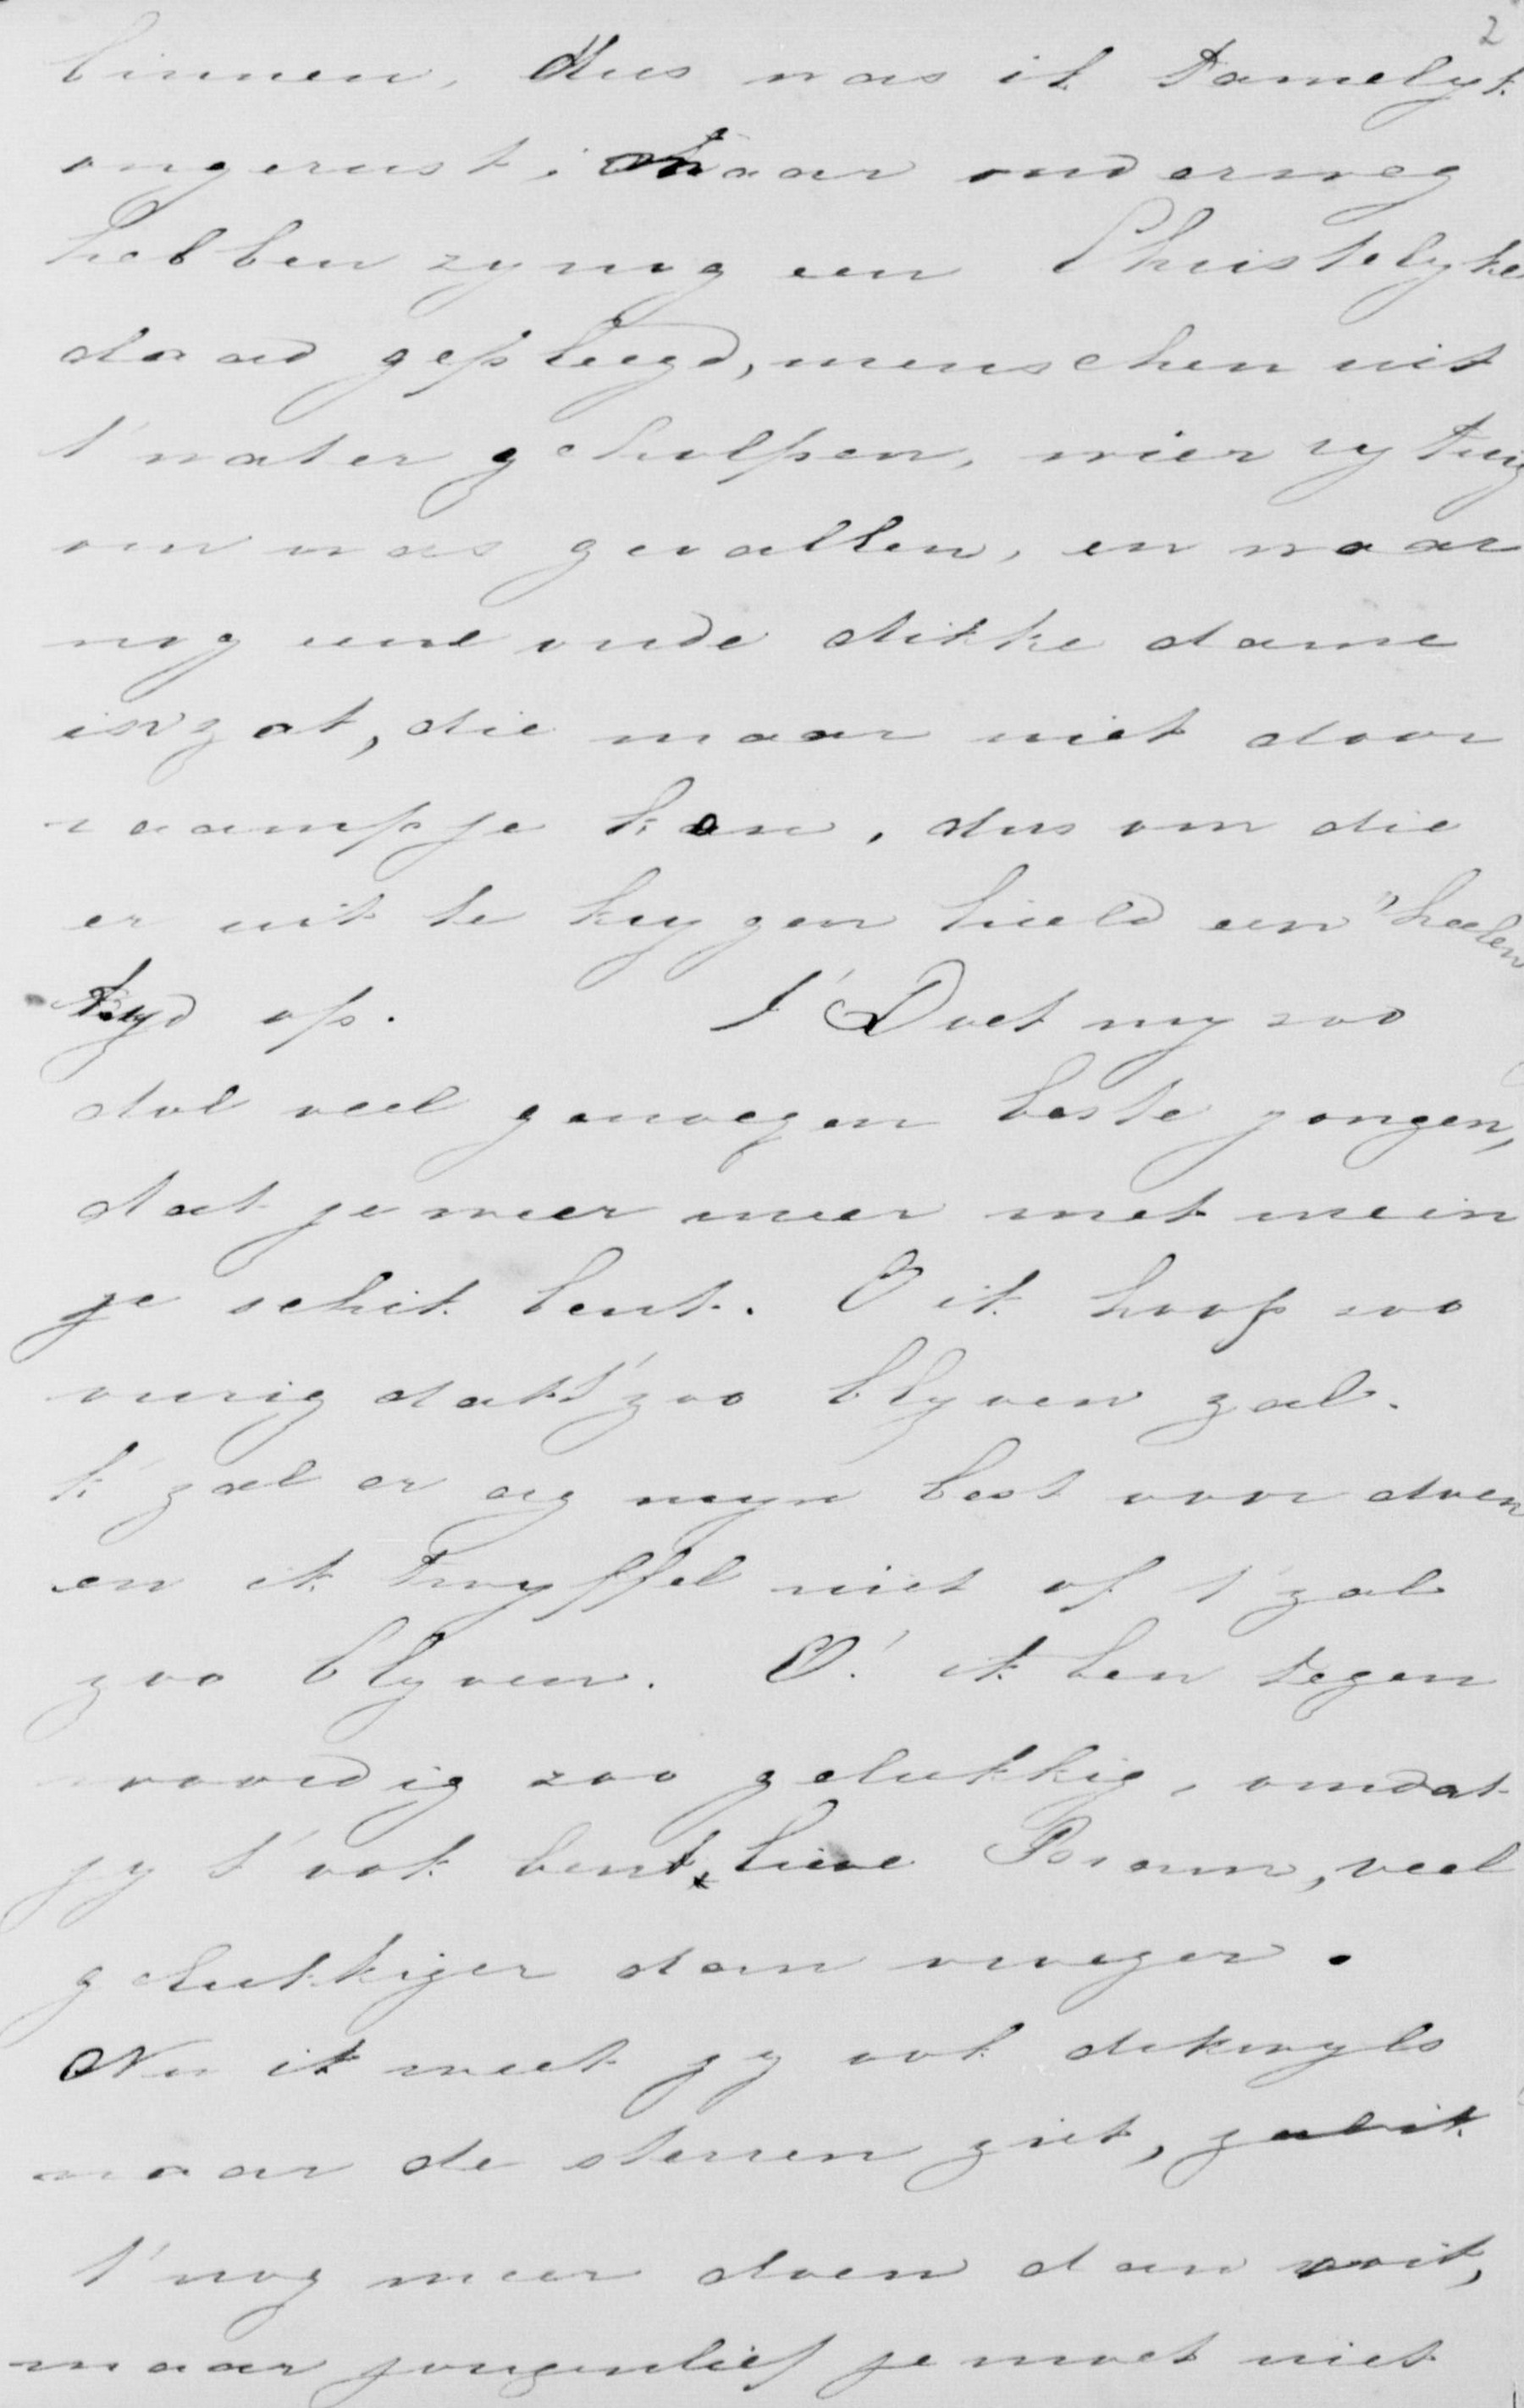 2
binnen, dus was ik tamelyk
ongerust; maar onderweg
hebben zy nog een Christelyke
daad gepleegd, menschen uit
t' water geholpen, wier rytuig
om was gevallen, en waar
nog eene oude dikke dame
in zat, die maar niet door
raampje kon, dus om die
er uit te krygen hield een heelen
tyd op. t' Doet my zoo
dol veel genoegen beste jongen,
dat je weer meer met mein
je schik bent. O ik hoop zoo
vurig dat t' zoo blyven zal.
k' zal er og myn best voor doen
en ik twyffel niet of t' zal
zoo blyven. O! ik ben tegen
woordig zoo gelukkig, omdat
jy t' ook bent, lieve Bram, veel
gelukkiger dan vroeger.
Nu ik weet jy ook dikwyls
naar de sterren ziet, zal ik
t' nog meer doen dan ooit,
maar jongenlief je moet niet